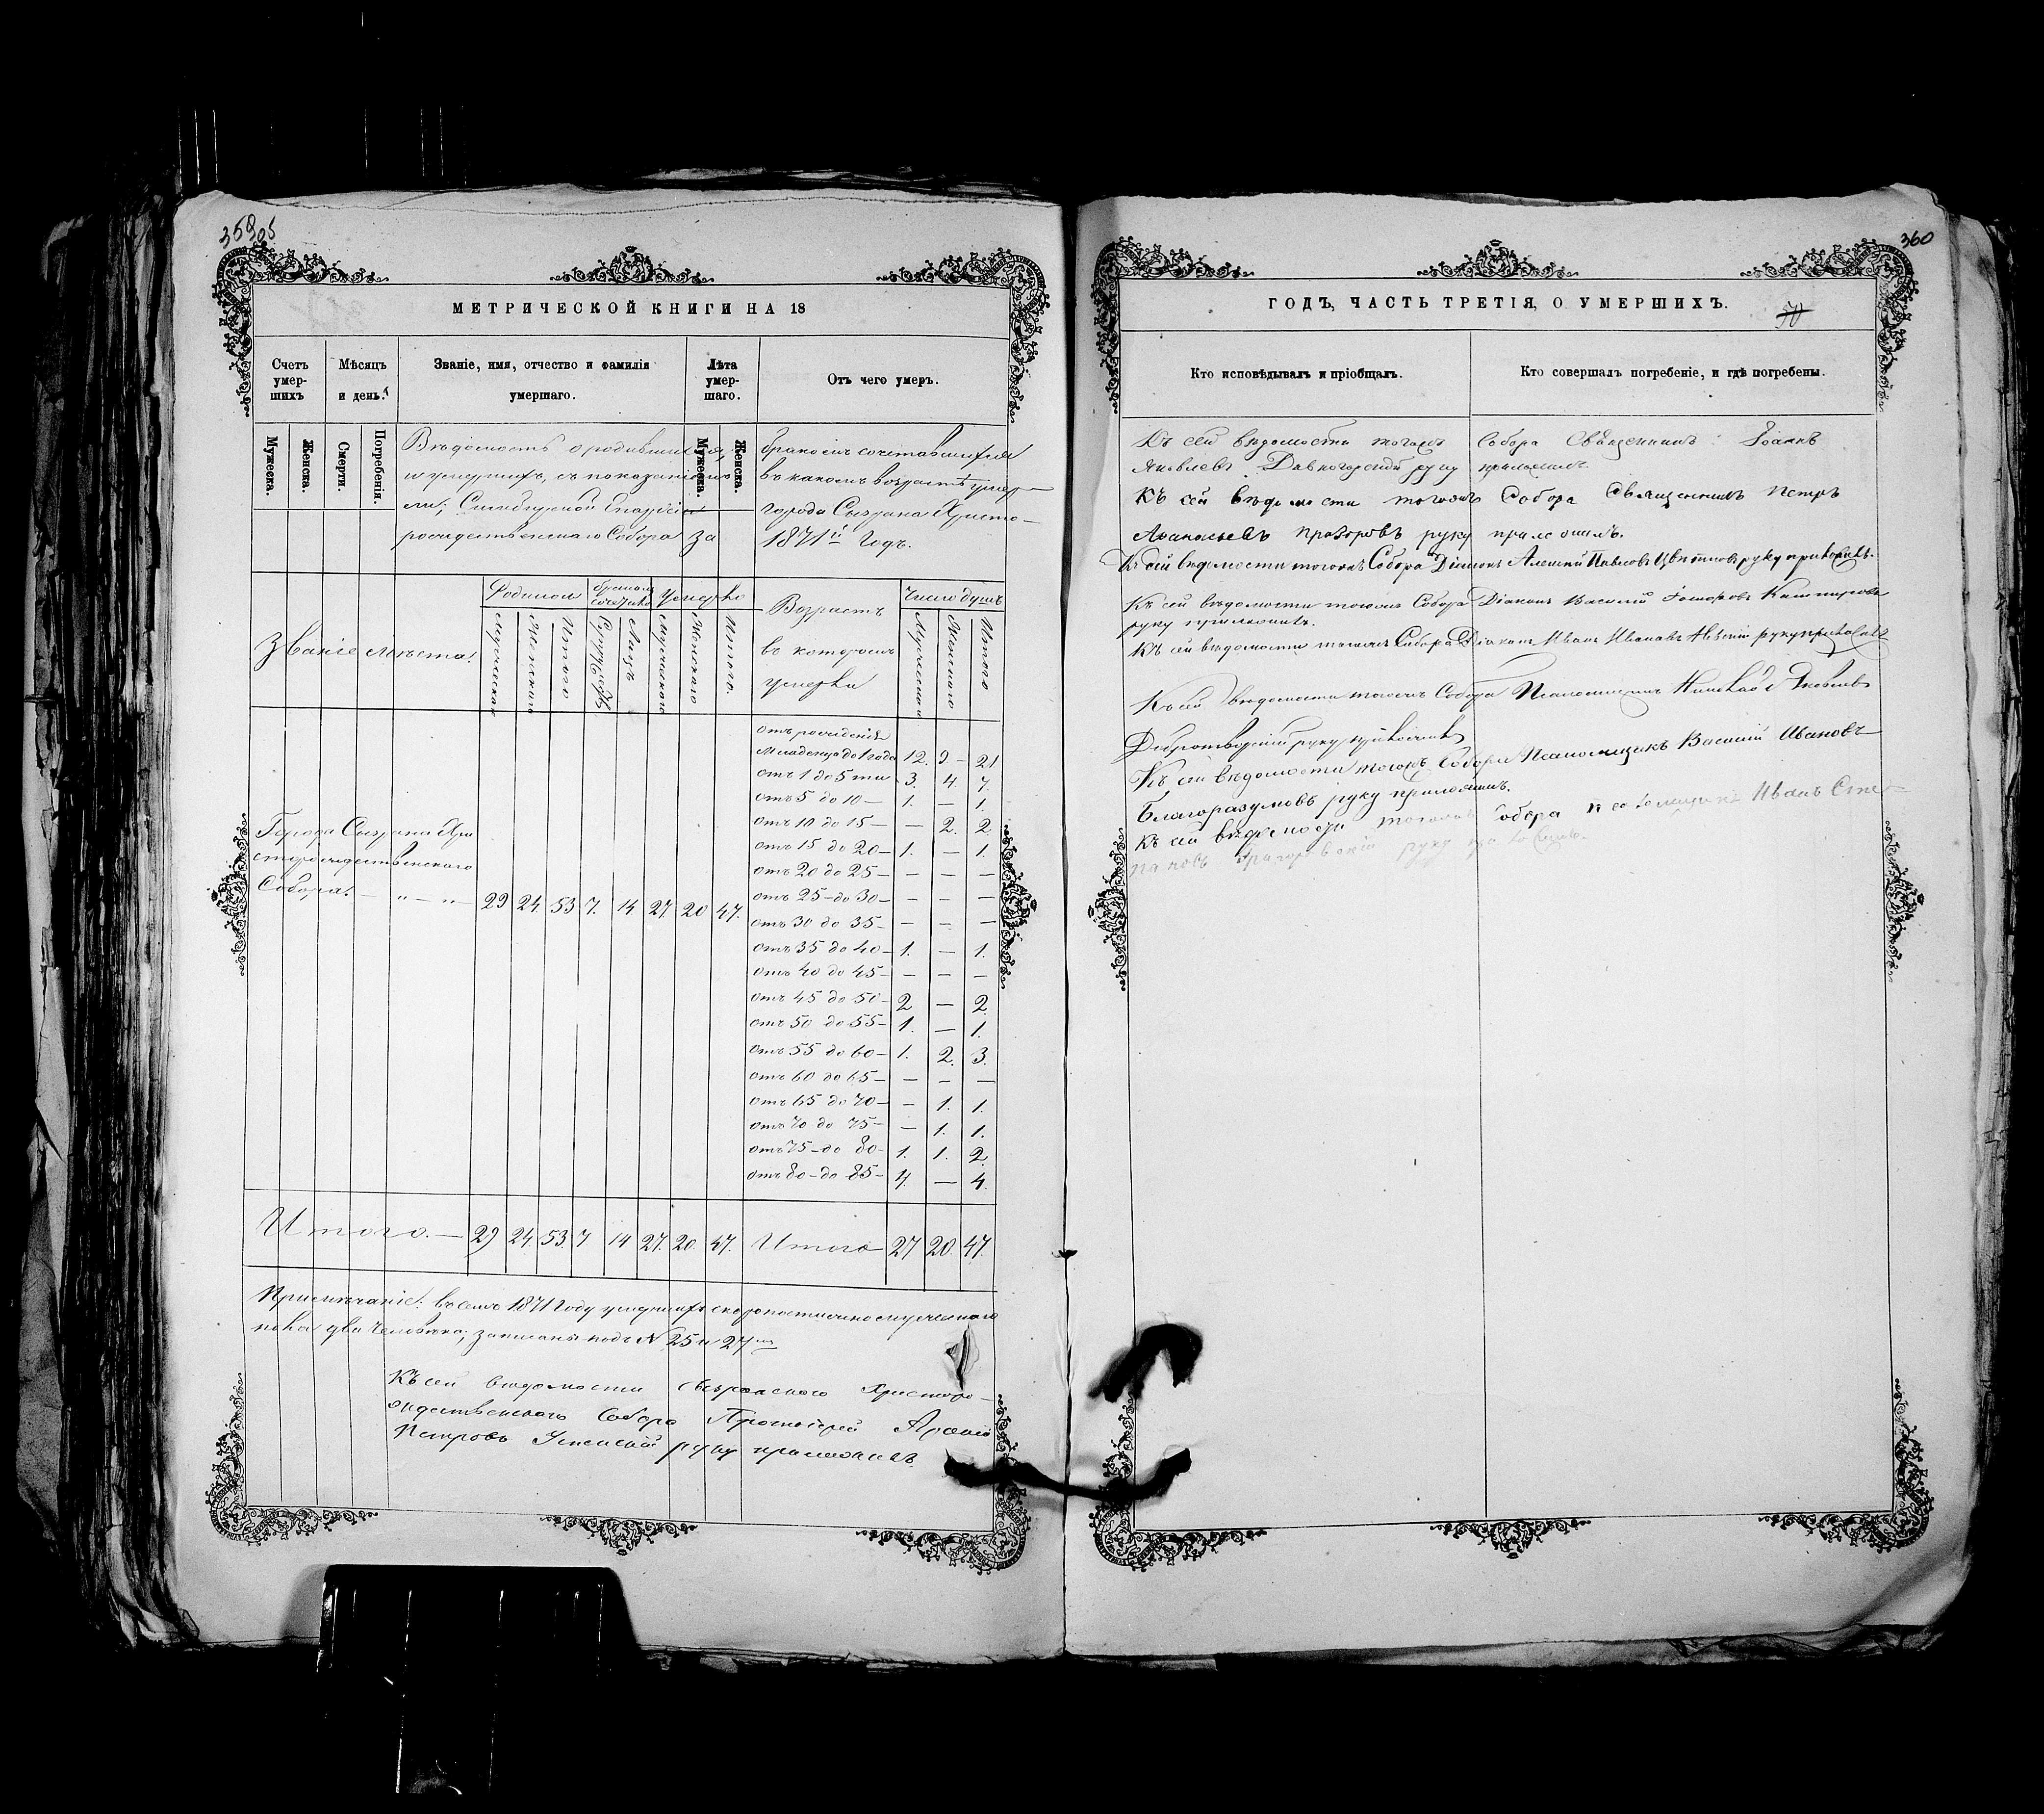 359об
МЕТРИЧЕСКОЙ КНИГИ НА 18
Счетъ умер-шихъ
Мѣсяцъ и день.
Званіе, имя, отчество и фамилія умершаго.
Лѣта умер-шаго.
Отъ чего умеръ.
Мужеска.
Женска.
Смерти.
Погребенія.
Мужеска.
Женска.
Вѣдомость о родившихся, бракомъ сочетавшихся
и умершихъ, съ показаніемъ въ какомъ возрастѣ умер-
ли; Симбирской Епархіи города Сызрана Христо-
рождественскаго Собора за 1871й годъ.
Званіе мѣста.
Родилось
бракомъ сочетано
Умерло
Возрастъ въ которомъ умерли
Число душъ
Мужескаго
Женскаго
Итого
Супружествъ
Лицъ
Мужескаго
Женскаго
Итого.
Мужескаго
Женскаго
Итого
отъ рожденія
Младенца до 1 года 12. 9 — 21
отъ 1 до 5 ти 3. 4. 7.
отъ 5 до 10 — 1. — 1.
отъ 10 до 15 — — 2. 2
отъ 15 до 20 — 1. — 1.
отъ 20 до 25 — — — —
отъ 25 — до 30 — — — —
отъ 30 до 35 — — — —
отъ 35 до 40 — 1. — 1.
отъ 40 до 45 — — — —
отъ 45 до 50 — 2 — 2
отъ 50 до 55 — 1. — 1.
отъ 55 до 60 — 1. 2. 3.
отъ 60 до 65 — — — —
отъ 65 до 70 — — 1. 1.
отъ 70 до 75 — — 1. 1.
отъ 75 — до 80 — 1. 1. 2.
отъ 80 — до 85 — 4. — 4.
Города Сызрана Хри
сторождественскаго
Собора. — „ — „ — 29 24. 53 7. 14. 27 20 47.
Итого. — 29 24. 53. 7 14 27. 20. 47. Итого 27 20. 47.
Примѣчаніе: въ семъ 1871 году умершихъ скоропостижно мужескаго
пола два человѣка; записаны подъ N 25 и 27мъ
Къ сей вѣдомости Сызранскаго Христоро-
ждественскаго Собора Протоіерей
Петровъ Успенскій руку приложилъ
360
ГОДЪ, ЧАСТЬ ТРЕТІЯ, О УМЕРШИХЪ.
70
Кто исповѣдывалъ и пріобщалъ.
Кто совершалъ погребеніе, и гдѣ погребены.
Къ сей вѣдомости тогожъ Собора Священникъ Іоаннъ
Яковлевъ Дивногорскій руку приложилъ
Къ сей вѣдомости тогожъ Собора Священникъ Петръ
Афанасьевъ Прозоровъ руку приложилъ.
Къ сей вѣдомости тогожъ Собора Діаконъ Алексѣй Павловъ Цвѣтковъ руку приложилъ.
Къ сей вѣдомости тогожъ Собора Діаконъ Василій
руку приложилъ.
Къ сей вѣдомости тогожъ Собора Діаконъ Иванъ Ивановъ руку приложилъ
Къ сей вѣдомости тогожъ Собора Псаломщикъ Николай Яковлевъ
Добротворскій руку приложилъ
Къ сей вѣдомости тогожъ Собора Псаломщикъ Василій Ивановъ
Благоразумовъ руку приложилъ.
Къ сей вѣдомости тогожъ Собора Псаломщикъ Иванъ Сте-
пановъ руку приложилъ.